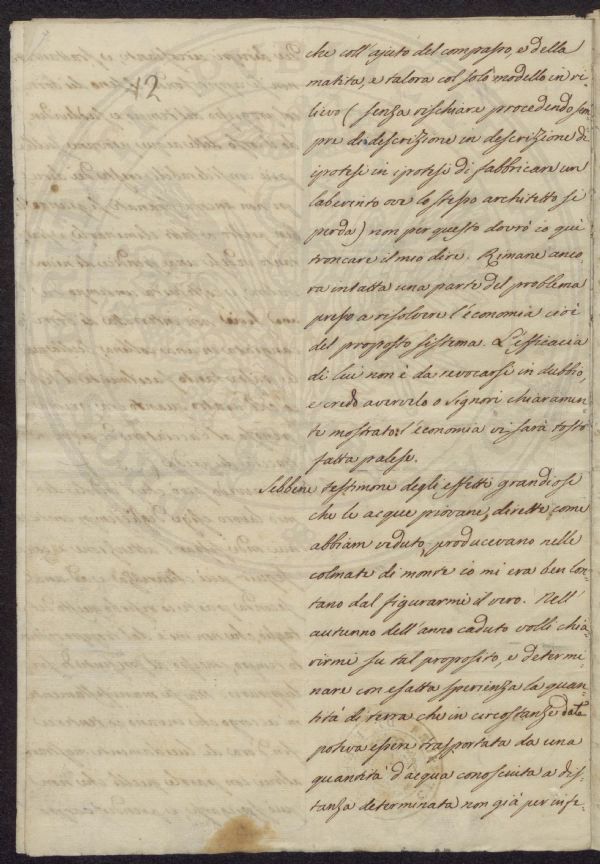 42
che coll'ajuto del compasso, e della
matita, e talora col solo modello in ri-
lievo (senza rischiare procedendo sem
pre di descrizione in descrizione di
ipotesi in ipotesi di fabbricare un
laberinto ove lo stesso architetto si
perda) non per questo dovrò io quì
troncare il mio dire. Rimane anco
ra intatta una parte del problema
preso a risolvere l'economia cioè
del proposto sistema. L'efficacia
di lui non è da revocarsi in dubbio,
e credo avervelo o Signori chiaramen-
te mostrato: l'economia vi sarà tosto
fatta palese.
Sebbene testimone degli effetti grandiosi
che le acque piovane, dirette come
abbiam veduto, producevano nelle
colmate di monte io mi era ben lon-
tano dal figurarmi il vero. Nell'
autunno dell'anno caduto volli chia-
rirmi su tal proposito, e determi-
nare con esatta sperienza la quan-
tità di terra che in circostanze date
poteva essere trasportata da una
quantità d'acqua conosciuta a dis-
tanza determinata non già per infe-